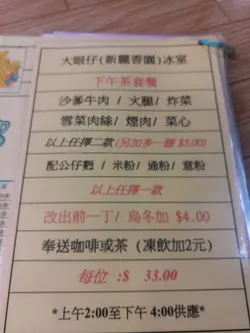 大眼仔(新麗香園)冰室
下午茶套餐
沙爹牛肉/ 火腿/ 炸菜
雪菜肉絲/ 煙肉/ 菜心
以上任擇二款(另加多一餸 $5.00)
配公仔麵 / 米粉/ 通粉/ 意粉
以上任擇一款
改出前一丁/ 烏冬加 $4.00
奉送咖啡或茶 (凍飲加2元)
每位 :$ 33.00
*上午2:00至下午 4:00供應*